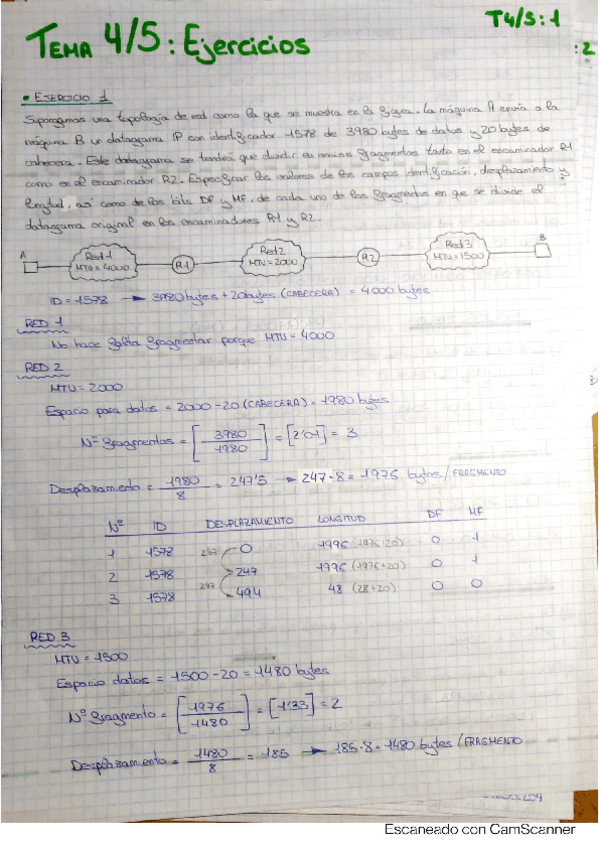 T4/5:1
TEMA 4/5: Ejercicios
:2
• EJERCICIO 1
Supongamos una topología de red como la que se muestra en la figura. La máquina A envía a la
máquina B un datagrama IP con identificador 1578 de 3980 bytes de datos y 20 bytes de
cabecera. Este datagrama se tendrá que dividir en varios fragmentos tanto en el encaminador R1
como en el encaminador R2. Especificar los valores de los campos identificación, desplazamiento y
longitud, así como de los bits DF y MF, de cada uno de los fragmentos en que se divide el
datagrama original en los encaminadores R1 y R2.
A Red 1 MTU = 4000 R1 Red 2 MTU = 2000 R2 Red 3 MTU = 1500 B
ID = 1578 → 3980 bytes + 20 bytes (CABECERA) = 4000 bytes
RED 1
No hace falta fragmentar porque MTU = 4000
RED 2
MTU = 2000
Espacio para datos = 2000 - 20 (CABECERA) = 1980 bytes
Nº fragmentos = [3980/1980] = [2'01] = 3
Desplazamiento = 1980/8 = 247'5 → 247·8 = 1976 bytes/FRAGMENTO
Nº ID DESPLAZAMIENTO LONGITUD DF MF
1 1578 247 0 1996 (1976+20) 0 1
2 1578 247 1996 (1976+20) 0 1
3 1578 247 494 48 (28+20) 0 0
RED 3
MTU = 1500
Espacio datos = 1500 - 20 = 1480 bytes
Nº fragmento = [1976/1480] = [1'33] = 2
Desplazamiento = 1480/8 = 185 → 185·8 = 1480 bytes/FRAGMENTO
Escaneado con CamScanner